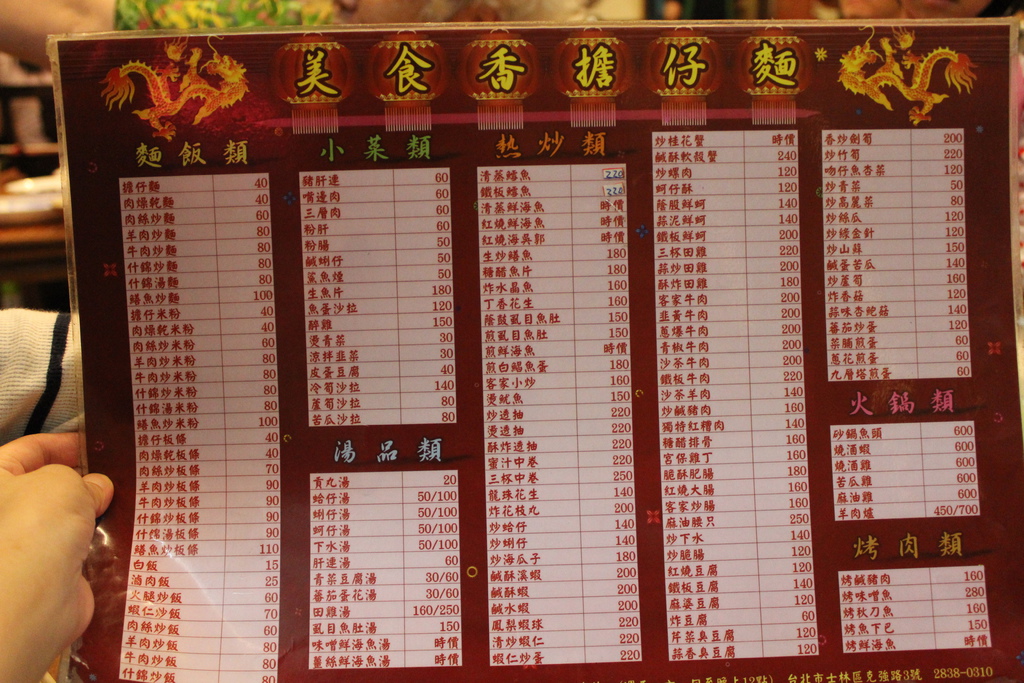 美食香擔仔麵
麵飯類
擔仔麵 40
肉燥乾麵 40
肉絲炒麵 60
羊肉炒麵 80
牛肉炒麵 80
什錦炒麵 80
什錦湯麵 80
鱔魚炒麵 100
擔仔米粉 40
肉燥乾米粉 40
肉絲炒米粉 60
羊肉炒米粉 80
牛肉炒米粉 80
什錦炒米粉 80
什錦湯米粉 80
鱔魚炒米粉 100
擔仔板條 40
肉燥乾板條 40
肉絲炒板條 70
羊肉炒板條 90
牛肉炒板條 90
什錦炒板條 90
什錦湯板條 90
鱔魚炒板條 110
白飯 15
滷肉飯 25
火腿炒飯 60
蝦仁炒飯 70
肉絲炒飯 60
羊肉炒飯 80
牛肉炒飯 80
什錦炒飯 80
小菜類
豬肝連 60
嘴邊肉 60
三層肉 60
粉肝 60
粉腸 50
鹹蜊仔 50
鯊魚煙 50
生魚片 180
魚蛋沙拉 120
醉雞 150
燙青菜 30
涼拌韭菜 30
皮蛋豆腐 40
冷筍沙拉 140
蘆筍沙拉 80
苦瓜沙拉 80
湯品類
貢丸湯 20
蛤仔湯 50/100
蜊仔湯 50/100
蚵仔湯 50/100
下水湯 50/100
肝連湯 60
青菜豆腐湯 30/60
蕃茄蛋花湯 30/60
田雞湯 160/250
虱目魚肚湯 150
味噌鮮海魚湯 時價
薑絲鮮海魚湯 時價
熱炒類
清蒸鱈魚 220
鐵板鱈魚 220
清蒸鮮海魚 時價
紅燒鮮海魚 時價
紅燒海吳郭 時價
生炒鱔魚 180
糖醋魚片 180
炸水晶魚 160
丁香花生 160
蔭鼓虱目魚肚 150
煎虱目魚肚 150
煎鮮海魚 時價
煎白鯧魚蛋 180
客家小炒 160
燙魷魚 150
炒透抽 220
燙透抽 220
酥炸透抽 220
蜜汁中卷 220
三杯中卷 250
龍珠花生 140
炸花枝丸 200
炒蛤仔 140
炒蜊仔 140
炒海瓜子 180
鹹酥溪蝦 200
鹹酥蝦 200
鹹水蝦 200
鳳梨蝦球 200
清炒蝦仁 200
蝦仁炒蛋 220
炒桂花蟹 時價
鹹酥軟殼蟹 240
炒螺肉 120
蚵仔酥 120
蔭豉鮮蚵 140
蒜泥鮮蚵 140
鐵板鮮蚵 200
三杯田雞 220
蒜炒田雞 200
酥炸田雞 180
客家牛肉 200
韭黃牛肉 200
蔥爆牛肉 200
青椒牛肉 200
沙茶牛肉 200
鐵板牛肉 220
沙茶羊肉 140
炒鹹豬肉 160
獨特紅糟肉 140
糖醋排骨 140
宮保雞丁 160
脆酥肥腸 180
紅燒大腸 160
客家炒腸 160
麻油腰只 250
炒下水 140
炒脆腸 120
紅燒豆腐 120
鐵板豆腐 140
麻婆豆腐 120
炸豆腐 60
芹菜臭豆腐 120
蒜香臭豆腐 120
香炒劍筍 200
炒竹筍 220
吻仔魚杏菜 120
炒青菜 50
炒高麗菜 80
炒絲瓜 120
炒綠金針 120
炒山蘇 150
鹹蛋苦瓜 140
炒蘆筍 160
炸香菇 120
蒜味杏鮑菇 140
蕃茄炒蛋 120
菜脯煎蛋 60
蔥花煎蛋 60
九層塔煎蛋 60
火鍋類
砂鍋魚頭 600
燒酒蝦 600
燒酒雞 600
苦瓜雞 600
麻油雞 600
羊肉爐 450/700
烤肉類
烤鹹豬肉 160
烤味噌魚 280
烤秋刀魚 160
烤魚下巴 150
烤鮮海魚 時價
台北市士林區克強路3號 2838-0310